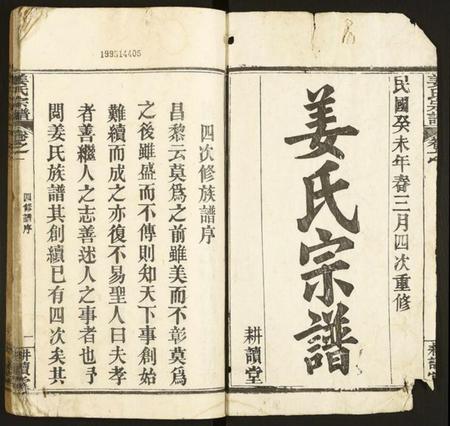 姜氏宗譜
卷之一
耕讀堂
民國癸未年春三月四次重修
姜氏宗譜
耕讀堂
199514405
四次修族譜序
昌黎云莫爲之前雖美而不彰莫爲
之後雖盛而不傳則知天下事創始
難續而成之亦復不易聖人曰夫孝
者善繼人之志善述人之事者也予
閱姜氏族譜其創續已有四次矣其
姜氏宗譜
卷之一
四修譜序
一
耕讀堂